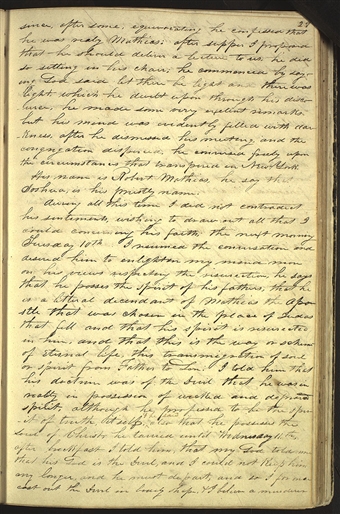 27
some, after some, equivocating he confessed that
he was realy Mathias: after supper I proposed
that he should deliver a lecture to us, he did
so sitting in his chair; he commenced by say-
ing God said let there be light and there was
light which he dwelt upon through his dis-
course, he made some very exelent remarks,
but his mind was evidently filled with dar-
kness, after he dismissed his meeting and the
congregation dispersed, he conversed freely upon
the circumstances that transpired in New York
His name is Robert Mathias, he say that
Joshua, is his priestly name.
during all this time I did not contradict
his sentiments, wishing to draw out all that I
could concerning his faith; the next morning
Tuesday 10th I resumed the conversation and
desired him to enlighten my mind more
on his views respecting the resurection, he says
that he posses the spirit of his fathers, that he
is a litteral decendant of Mathias the Apo-
stle that was chosen in the place of Judas
that fell and that his spirit is resurected
in him, and that this is the way or scheme
of eternal life, this transmigration of soul
or spirit from Father to Son. I told him that
his doctrine was of the Devil that he was in
reality in possession of wicked and depraved
spirit, although he professed to be the spir-
it of truth, itself, also that he possesses the
soul of Christ; he tarried until Wednesday 11th,
after breakfast I told him, that my God told me
that his God is the Devil, and I could not keep him
any longer, and he must depart, and so I for once
cast out the Devil in bodily shape, & I believe a murderer